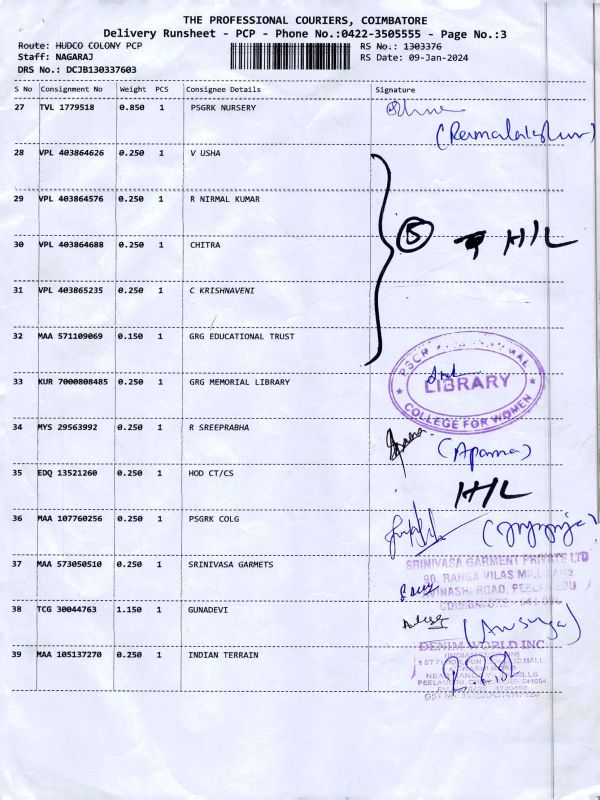 THE PROFESSIONAL COURIERS, COIMBATORE
Delivery Runsheet - PCP - Phone No.:0422-3505555 - Page No.:3
Route: HUDCO COLONY PCP
RS No.: 1303376
Staff: NAGARAJ
RS Date: 09-Jan-2024
DRS No.: DCJB130337603
S No Consignment No Weight PCS Consignee Details Signature
27 TVL 1779518 0.850 1 PSGRK NURSERY
28 VPL 403864626 0.250 1 V USHA
29 VPL 403864576 0.250 1 R NIRMAL KUMAR
30 VPL 403864688 0.250 1 CHITRA
5 H/L
31 VPL 403865235 0.250 1 C KRISHNAVENI
32 MAA 571109069 0.150 1 GRG EDUCATIONAL TRUST
33 KUR 7000808485 0.250 1 GRG MEMORIAL LIBRARY
LIBRARY
COLLEGE FOR WOMEN
34 MYS 29563992 0.250 1 R SREEPRABHA
(Aparna)
35 EDQ 13521260 0.250 1 HOD CT/CS
H/L
36 MAA 107760256 0.250 1 PSGRK COLG
37 MAA 573050510 0.250 1 SRINIVASA GARMETS
SRINIVASA GARMENT PRIVATE LTD
90, RANGA VILAS MILL
AVINASHI ROAD, PEELAMEDU
38 TCG 30044763 1.150 1 GUNADEVI
DENIM WORLD INC
39 MAA 105137270 0.250 1 INDIAN TERRAIN